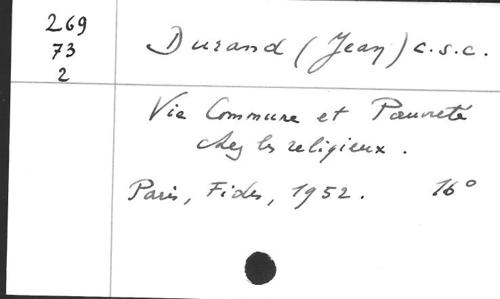 269
73
2
Durand (Jean) c.s.c.
Vie Commune et Pauvreté
chez les religieux.
Paris, Fides, 1952. 16°